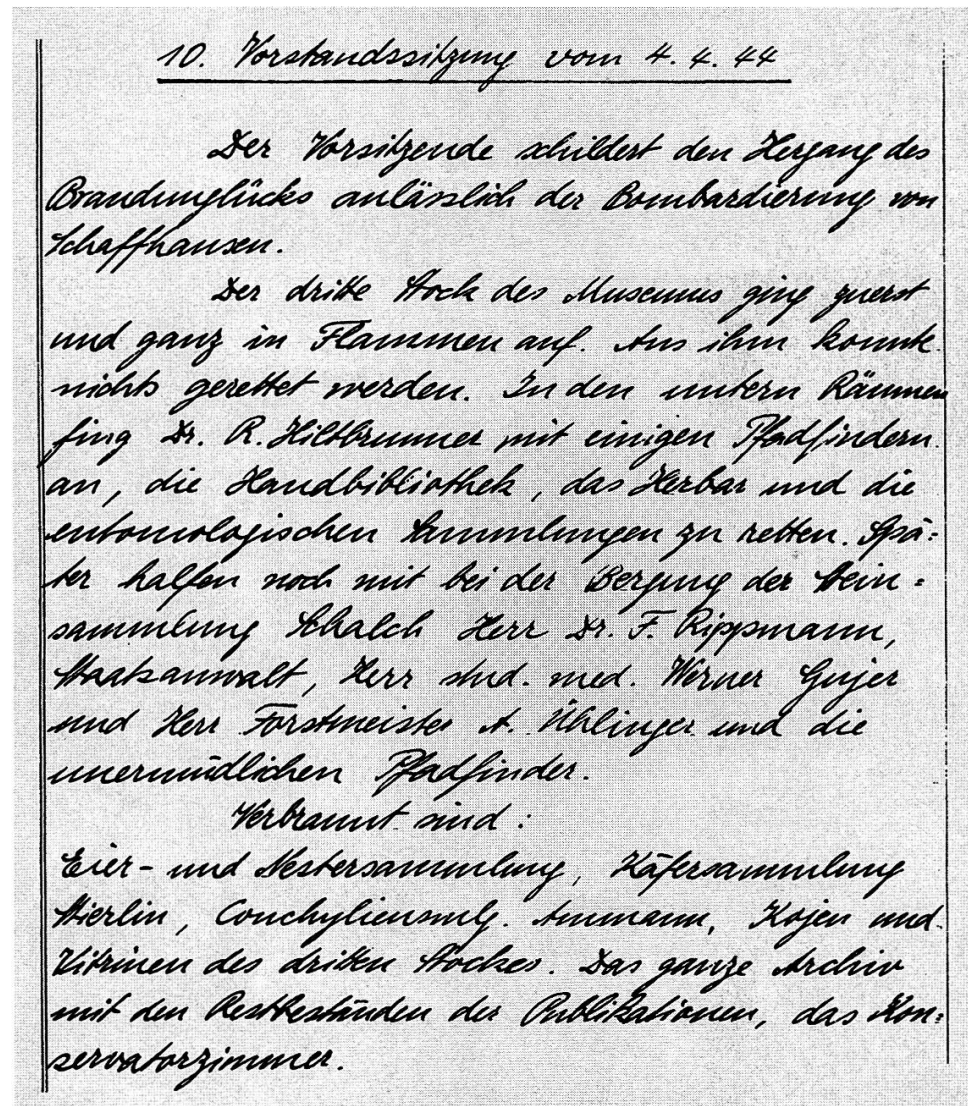 10. Vorstandssitzung vom 4. 4. 44
Der Vorsitzende schildert den Hergang des
Brandunglücks anlässlich der Bombardierung von
Schaffhausen.
Der dritte Stock des Museums ging zuerst
und ganz in Flammen auf. Aus ihm konnte
nichts gerettet werden. In den untern Räumen
fing Dr. R. Hiltbrunner mit einigen Pfadfindern
an, die Handbibliothek, das Herbar und die
entomologischen Sammlungen zu retten. Spä=
ter halfen noch mit bei der Bergung der Stein=
sammlung Schalch Herr Dr. F. Rippmann,
Staatsanwalt, Herr stud. med. Werner Gujer
und Herr Forstmeister A. Uehlinger und die
unermüdlichen Pfadfinder.
Verbrannt sind:
Eier- und Nestersammlung, Käfersammlung
Stierlin, Conchyliensmlg. Ammann, Kojen und
Vitrinen des dritten Stockes. Das ganze Archiv
mit den Restbeständen der Publikationen, das Kon=
servatorzimmer.